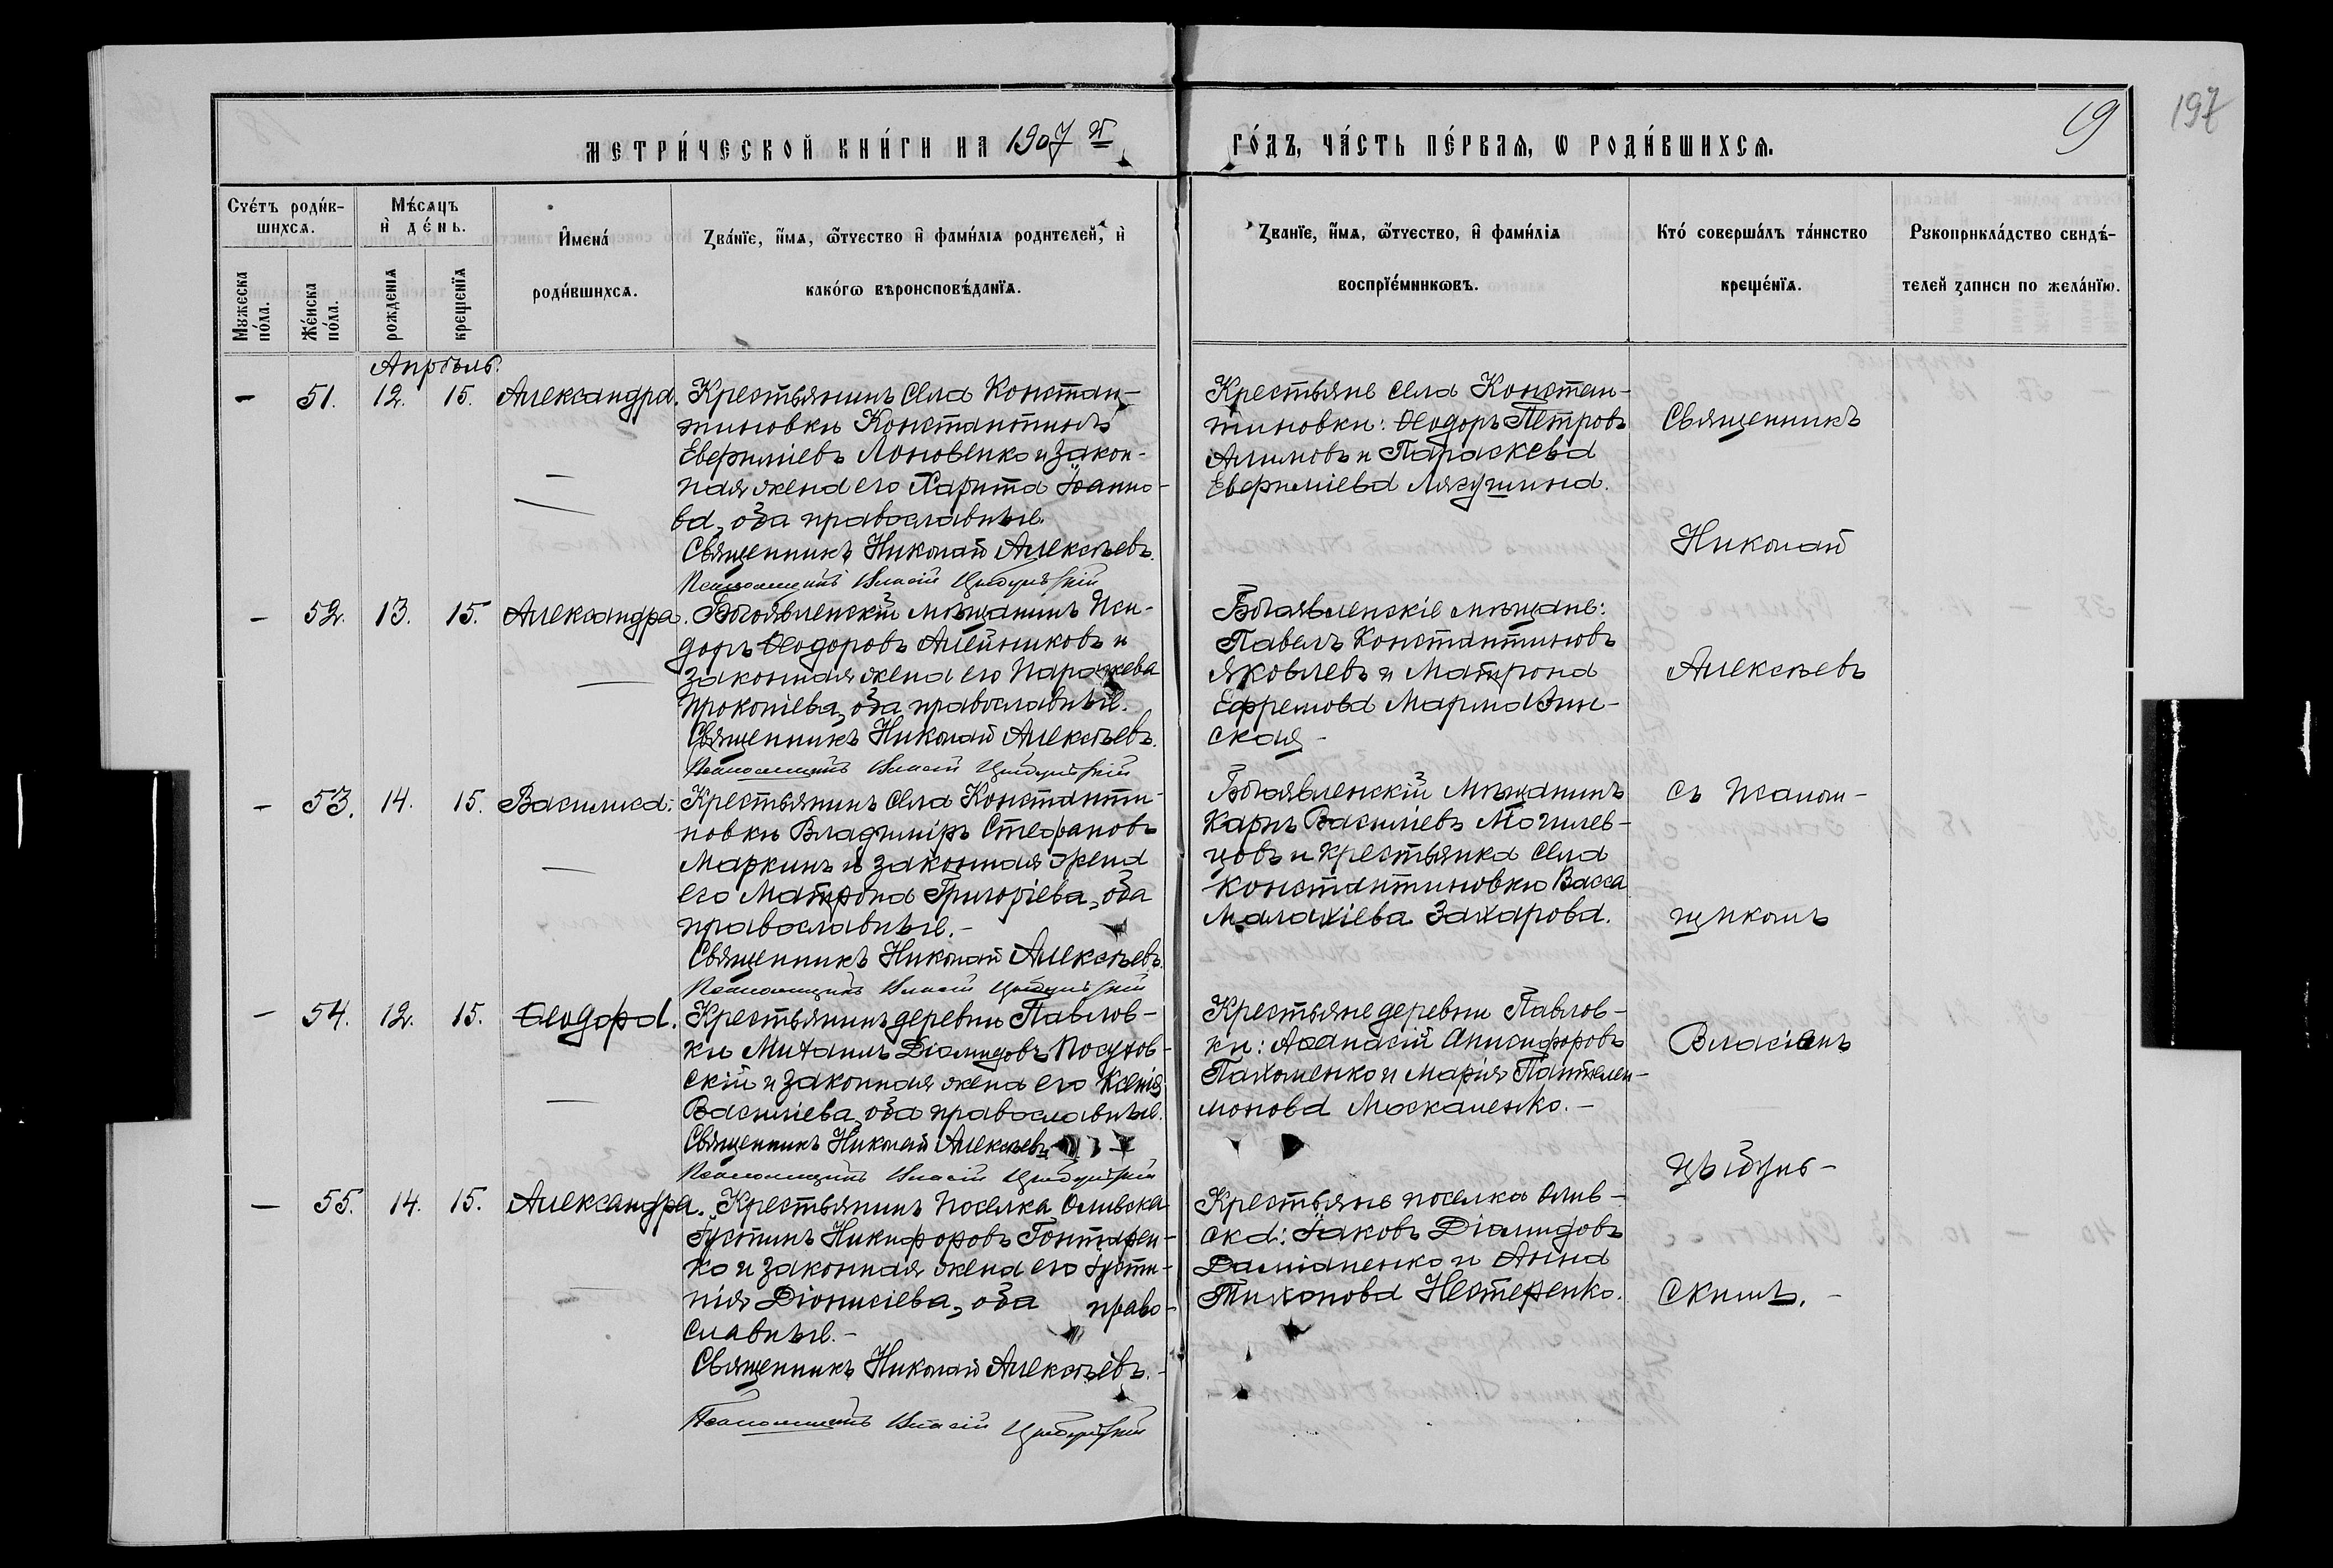 197
19
МЕТРИ́ЧЕСКОЙ КНИ́ГИ НА 1907 й
ГО́ДЪ, ЧА́СТЬ ПЕ́РВАѦ, Ѡ РОДИ́ВШИХСѦ.
Сче́тъ роди́в-
шихсѧ.
Мѣ́сѧцъ
и҆ де́нь.
Мꙋжеска
по́ла.
Же́нска
по́ла.
рожденїѧ
крещенїѧ
И҆мена́
роди́вшихсѧ.
Ꙁва́нїе, и҆́мѧ, ѻ҆́тчество и҆ фами́лїѧ родителей, и҆
како́гѡ вѣроисповѣ́данїѧ.
Ꙁванїе, и҆́мѧ, ѻ҆́тчество, и҆ фами́лїѧ
воспрїе́мникѡвъ.
Кто́ соверша́лъ та́инство
креще́нїѧ.
Рꙋкоприкла́дство свидѣ́-
телей ꙁаписи по жела́нїю.
Апрѣль.
— 51. 12. 15. Александра.
Крестьянинъ села Констан-
тиновки Константинъ
Евфиміевъ Лоновенко и закон-
ная жена его Харита Іоанно-
ва, оба православные.
Священникъ Николай Алексѣевъ.
Псаломщикъ Власій Цыбульскій
Крестьяне села Констан-
тиновки: Ѳеодоръ Петровъ
Алимовъ и Параскева
Евфиміева Лякушина.
— 52. 13. 15. Александра.
Богоявленскій мѣщанинъ Иси-
доръ Ѳеодоровъ Алейниковъ и
законная жена его Параскева
Прокопіева, оба православные.
Священникъ Николай Алексѣевъ.
Псаломщикъ Власій Цыбульскій
Богоявленскіе мѣщане:
Павелъ Константиновъ
Яковлевъ и Матрона
Ефремова Мар
ская -
— 53. 14. 15. Василиса.
Крестьянинъ села Константи-
новки Владиміръ Стефановъ
Маркинъ и законная жена
его Матрона Григоріева, оба
православные. -
Священникъ Николай Алексѣевъ.
Псаломщикъ Власій Цыбульскій
Богоявленскій мѣщанинъ
Карпъ Василіевъ Могилев-
цовъ и крестьянка села
Константиновки Васса
Малахіева Захарова.
— 54. 12. 15. Ѳеодора.
Крестьянинъ деревни Павлов-
ки Михаилъ Діомидовъ Косухов-
скій и законная жена его Ксенія
Василіева, оба православные.
Священникъ Николай Алексѣевъ
Псаломщикъ Власій Цыбульскій
Крестьяне деревни Павлов-
ки: Аѳанасій Онисифоровъ
Пахоменко и Марія Пантелеи-
монова Москаленко. -
— 55. 14. 15. Александра.
Крестьянинъ поселка Ольвска
Іустинъ Никифоровъ Гонтарен-
ко и законная жена его Іусти-
нія Діонисіева, оба право-
славные. -
Священникъ Николай Алексѣевъ. -
Псаломщикъ Власій Цыбульскій
Крестьяне поселка Ольв-
ска: Іаковъ Діомидовъ
Даміаненко и Анна
Тихонова Нестеренко.
Священникъ
Николай
Алексѣевъ
съ псалом-
щикомъ
Власіемъ
Цыбуль-
скимъ. -